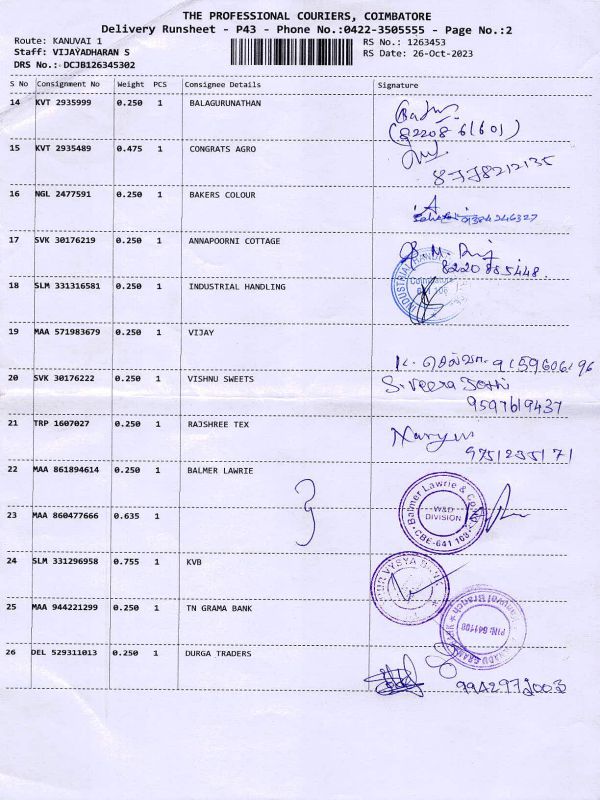 THE PROFESSIONAL COURIERS, COIMBATORE
Delivery Runsheet - P43 - Phone No.:0422-3505555 - Page No.:2
Route: KANUVAI 1
RS No.: 1263453
Staff: VIJAYADHARAN S
RS Date: 26-Oct-2023
DRS No.: DCJB126345302
S No Consignment No Weight PCS Consignee Details Signature
14 KVT 2935999 0.250 1 BALAGURUNATHAN
(82208 61601)
15 KVT 2935489 0.475 1 CONGRATS AGRO
8778212135
16 NGL 2477591 0.250 1 BAKERS COLOUR
17 SVK 30176219 0.250 1 ANNAPOORNI COTTAGE
8220885448
18 SLM 331316581 0.250 1 INDUSTRIAL HANDLING
INDUSTRIAL HANDLING
Coimbatore
19 MAA 571983679 0.250 1 VIJAY
20 SVK 30176222 0.250 1 VISHNU SWEETS
S. Veera Jothi
9597619437
21 TRP 1607027 0.250 1 RAJSHREE TEX
9751235171
22 MAA 861894614 0.250 1 BALMER LAWRIE
Balmer Lawrie & Co.
W&D
DIVISION
CBE-641 103
23 MAA 860477666 0.635 1
24 SLM 331296958 0.755 1 KVB
VYSYA BANK
25 MAA 944221299 0.250 1 TN GRAMA BANK
PIN: 641108
26 DEL 529311013 0.250 1 DURGA TRADERS
9942972003